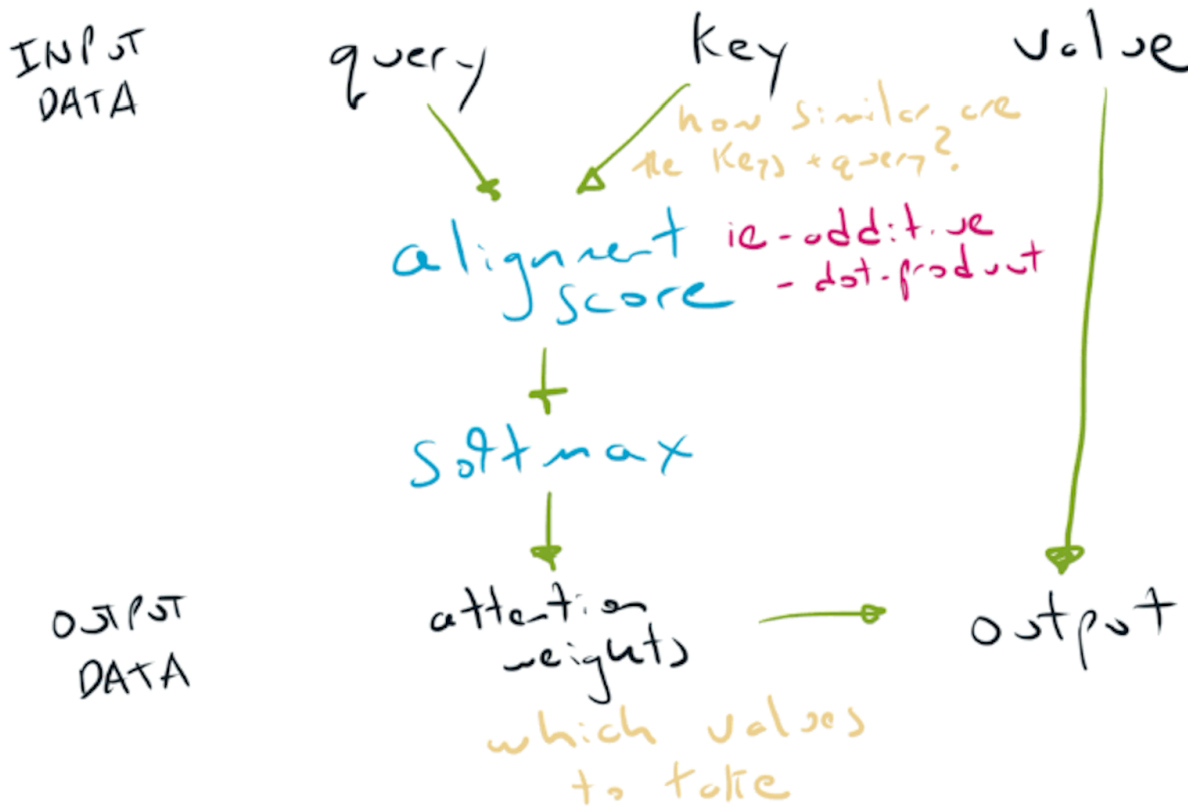 INPUT
DATA
query
key
value
how similar are
the keys + query?
alignment
score
ie - additive
- dot-product
softmax
attention
weights
output
OUTPUT
DATA
which values
to take